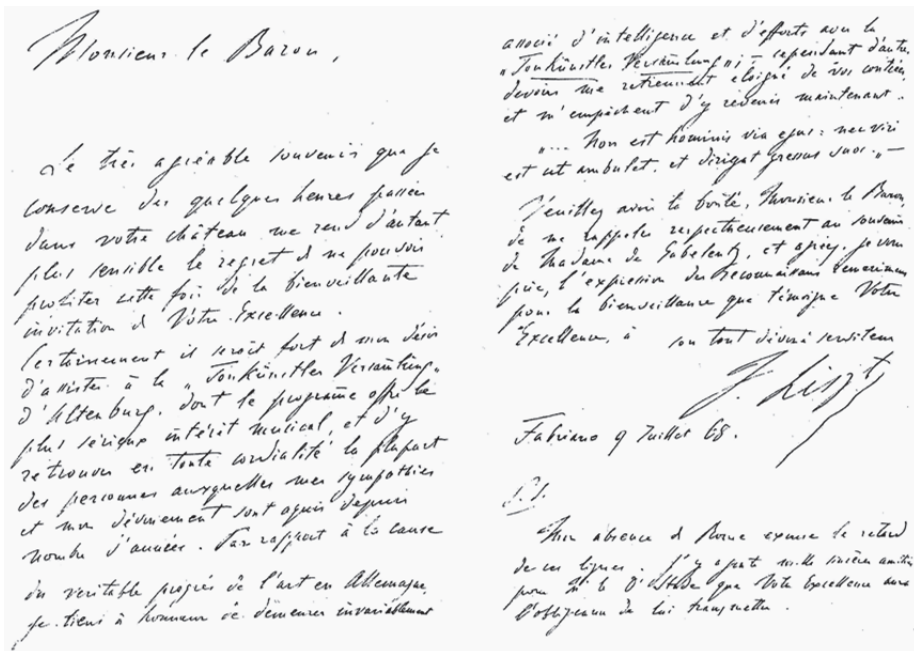 Monsieur le Baron,
Le très agréable souvenir que je
conserve des quelques heures passées
dans votre château me rend d'autant
plus sensible le regret de ne pouvoir
profiter cette fois de la bienveillante
invitation de Votre Excellence.
Certainement il serait fort de mon désir
d'assister à la „Tonkünstler Versamlung„
d'Altenburg, dont le programme offre le
plus sérieux intérêt musical, et d'y
retrouver en toute cordialité la plupart
des personnes auxquelles mes sympathies
et mon dévouement sont acquis depuis
nombre d'années. Par rapport à la cause
du veritable progrès de l'art en Allemagne,
je tiens à honneur de demeurer invariablement
associé d'intelligence et d'efforts avec la
„Tonkünstler Versamlung„; – cependant d'autres
devoirs me retiennent eloigné de vos contrées,
et m'empêchent d'y revenir maintenant. –
„... Non est hominis via ejus: nec viri
est ut ambulet, et dirigat gressus suos.„ –
Veuillez avoir la bonté, Monsieur le Baron,
de me rappeler respectueusement au souvenir
de Madame de Gabelentz, et agréez, je vous
prie, l'expression des reconnaissans remercimens
pour la bienveillance que témoigne Votre
Excellence, à son tout dévoué serviteur
F. Liszt
Fabriano 9 Juillet 68.
P.S.
Mon absence de Rome excuse le retard
de ces lignes. J'y ajoute mille sincères amitiés
pour Mr le que Votre Excellence aura
l'obligeance de lui transmettre.